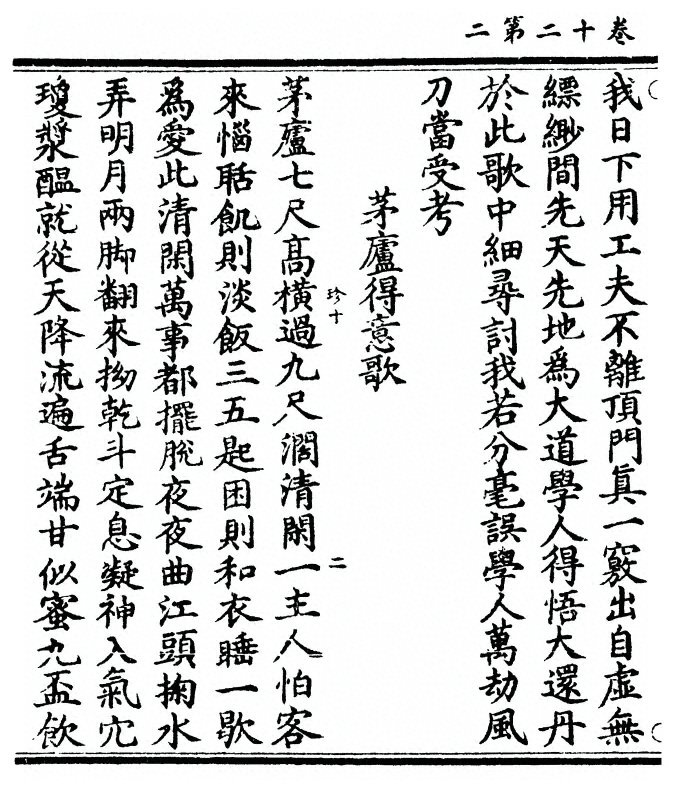 卷十二第二
我日下用工夫不離頂門真一竅出自虛無
縹緲間先天先地爲大道學人得悟大還丹
於此歌中細尋討我若分毫誤學人萬劫風
刀當受考
茅廬得意歌
茅廬七尺高橫過九尺濶清閑一主人怕客
珍十
二
來惱聒飢則淡飯三五匙困則和衣睡一歇
爲愛此清閑萬事都擺脫夜夜曲江頭掬水
弄明月兩脚翻來拗乾斗定息凝神入氣穴
瓊漿醞就從天降流遍舌端甘似蜜九盃飲